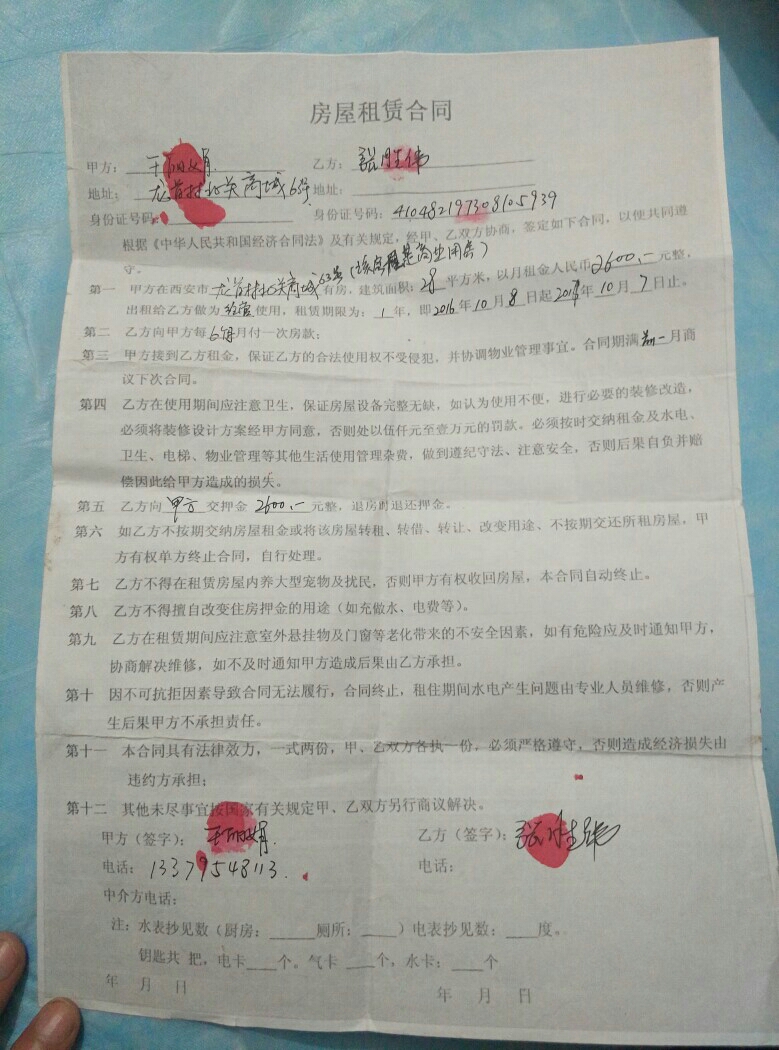 房屋租赁合同
甲方： 乙方：张胜伟
地址：龙首村北关商城63号 地址：
身份证号码： 身份证号码：410482197308105939
根据《中华人民共和国经济合同法》及有关规定，经甲、乙双方协商，签定如下合同，以使共同遵
守。 （该房屋是商业用房）
第一 甲方在西安市龙首村北关商城63号有房，建筑面积：28平方米，以月租金人民币2600.一元整，
出租给乙方做为经营使用，租赁期限为：1年，即2016年10月8日起2017年10月7日止。
第二 乙方向甲方每6个月付一次房款；
第三 甲方接到乙方租金，保证乙方的合法使用权不受侵犯，并协调物业管理事宜。合同期满前一月商
议下次合同。
第四 乙方在使用期间应注意卫生，保证房屋设备完整无缺，如认为使用不便，进行必要的装修改造，
必须将装修设计方案经甲方同意，否则处以伍仟元至壹万元的罚款。必须按时交纳租金及水电、
卫生、电梯、物业管理等其他生活使用管理杂费，做到遵纪守法、注意安全，否则后果自负并赔
偿因此给甲方造成的损失。
第五 乙方向甲方交押金2600.一元整，退房时退还押金。
第六 如乙方不按期交纳房屋租金或将该房屋转租、转借、转让、改变用途、不按期交还所租房屋，甲
方有权单方终止合同，自行处理。
第七 乙方不得在租赁房屋内养大型宠物及扰民，否则甲方有权收回房屋，本合同自动终止。
第八 乙方不得擅自改变住房押金的用途（如充做水、电费等）。
第九 乙方在租赁期间应注意室外悬挂物及门窗等老化带来的不安全因素，如有危险应及时通知甲方，
协商解决维修，如不及时通知甲方造成后果由乙方承担。
第十 因不可抗拒因素导致合同无法履行，合同终止，租住期间水电产生问题由专业人员维修，否则产
生后果甲方不承担责任。
第十一 本合同具有法律效力，一式两份，甲、乙双方各执一份，必须严格遵守，否则造成经济损失由
违约方承担；
第十二 其他未尽事宜按国家有关规定甲、乙双方另行商议解决。
甲方（签字）： 乙方（签字）：张胜伟
电话：13379548113. 电话：
中介方电话：
注：水表抄见数（厨房：____厕所：____）电表抄见数：____度。
钥匙共 把，电卡____个。气卡____个，水卡：____个
年 月 日 年 月 日